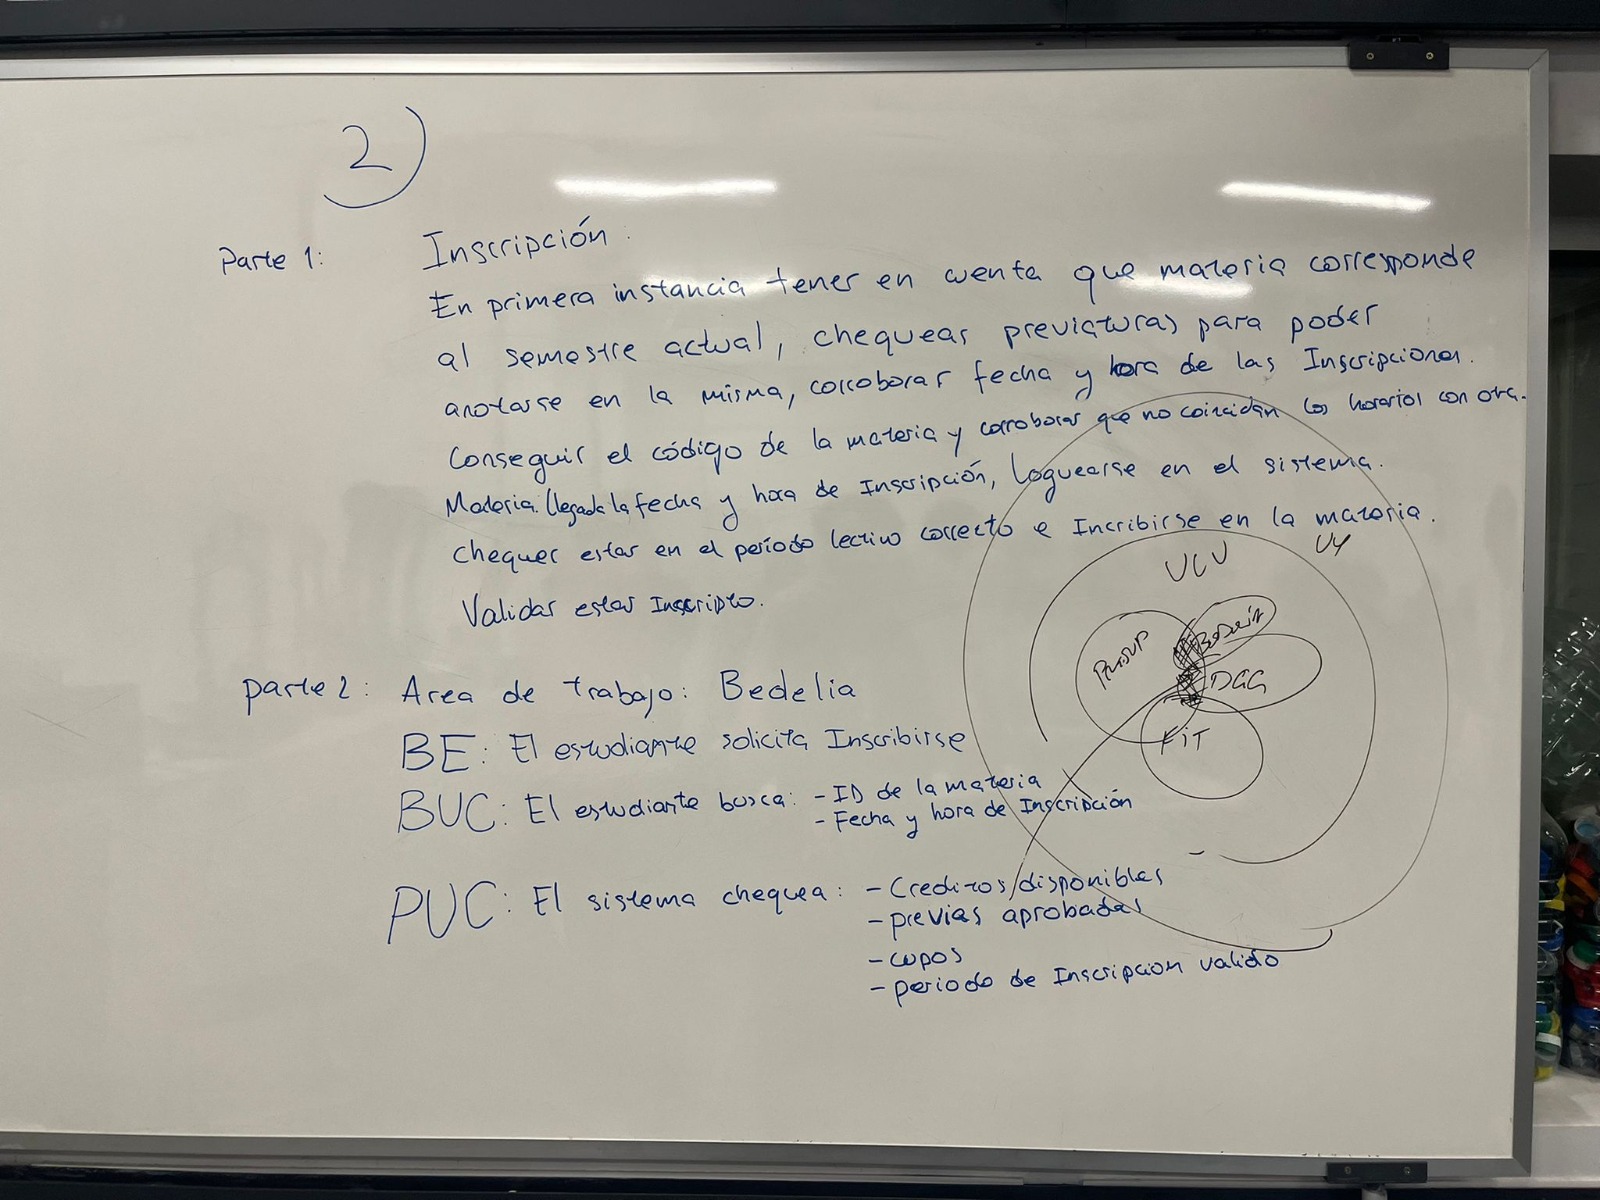 2)
Parte 1: Inscripción:
En primera instancia tener en cuenta que materia corresponde
al semestre actual, chequear previaturas para poder
anotarse en la misma, corroborar fecha y hora de las Inscripciones.
Conseguir el código de la materia y corroborar que no coincidan los horarios con otra
Materia. llegada la fecha y hora de Inscripción, loguearse en el sistema.
chequer estar en el período lectivo correcto e Incribirse en la materia.
Validar estar Inscripto.
UY
UCU
Bedelía
DGG
FIT
parte 2: Area de trabajo: Bedelia
BE: El estudiante solicita Inscribirse
BUC: El estudiante busca: - ID de la materia
- Fecha y hora de Inscripción
PUC: El sistema chequea: - Creditos disponibles
- previas aprobadas
- cupos
- periodo de Inscripcion valido